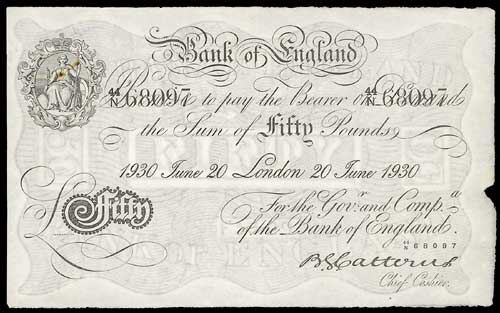 Bank of England
44/N 68097 44/N 68097
to pay the Bearer on
the Sum of Fifty Pounds
1930 June 20 London 20 June 1930
For the Govr. and Compa.
of the Bank of England.
44/N 68097
£ Fifty
B G Catterns
Chief Cashier.